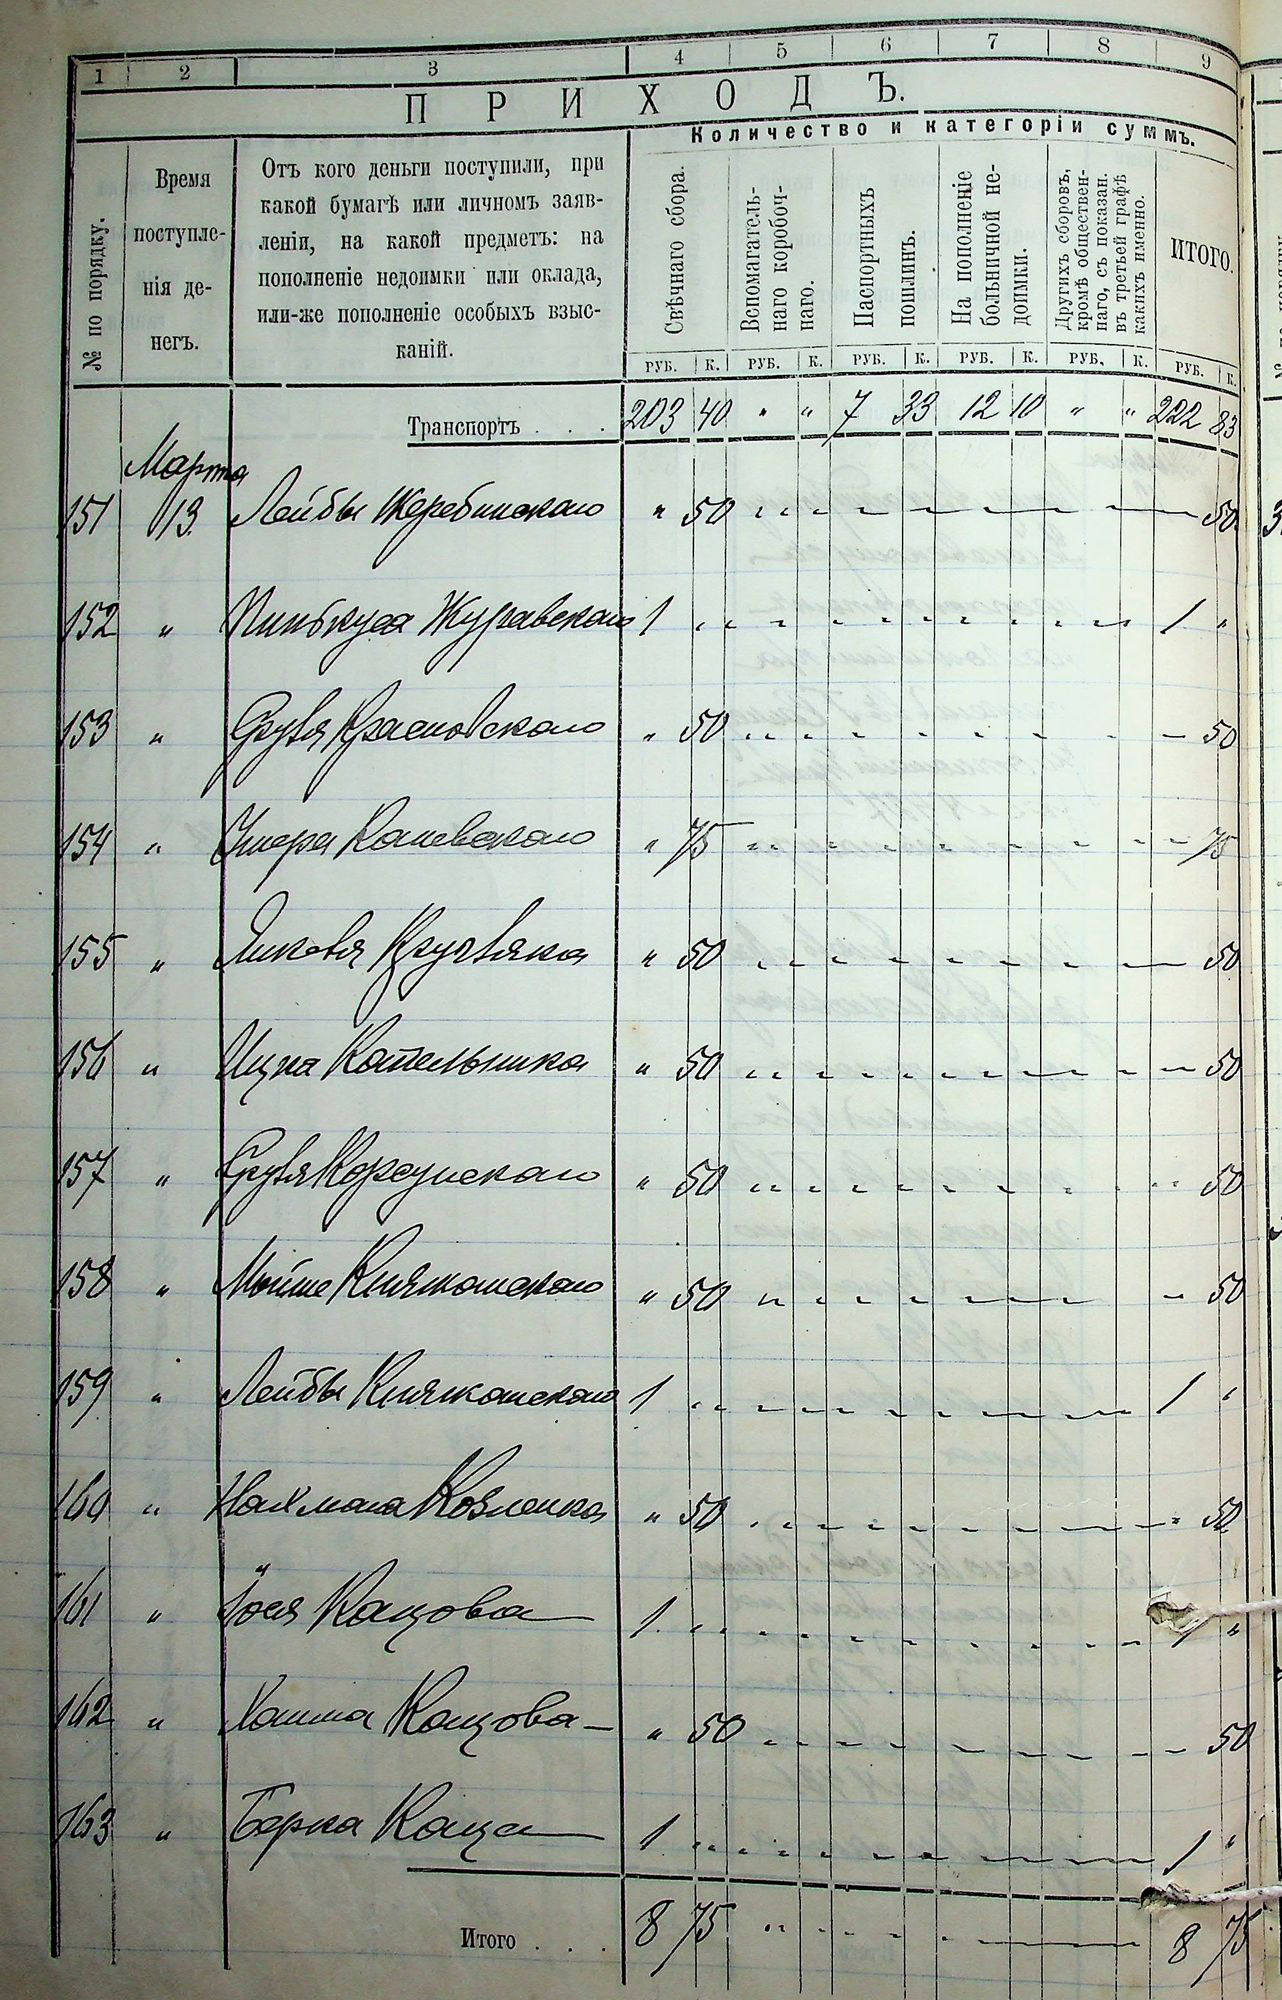 1 2 3 4 5 6 7 8 9
ПРИХОДЪ.
Количество и категоріи суммъ.
№ по порядку.
Время
поступле-
нія де-
негъ.
Отъ кого деньги поступили, при
какой бумагѣ или личномъ заяв-
леніи, на какой предметъ: на
пополненіе недоимки или оклада,
или-же пополненіе особыхъ взыс-
каній.
Свѣчнаго сбора.
Вспомагатель-
наго коробоч-
наго.
Паспортныхъ
пошлинъ.
На пополненіе
больничной не-
доимки.
Другихъ сборовъ,
кромѣ обществен-
наго, съ показан.
въ третьей графѣ
какихъ именно.
ИТОГО.
РУБ. К. РУБ. К. РУБ. К. РУБ. К. РУБ. К. РУБ. К.
Транспортъ . . . 203 40 " " 7 33 12 10 " " 222 83
Марта
151 13 Лейбы Жеребинскаго " 50 50
152 " Пинькуса Журавскаго 1 " 1 "
153 " Сруля Красновскаго " 50 50
154 " Каневскаго " 75 75
155 " " 50 50
156 " Ицка Капельника " 50 50
157 " Сруля Корсунскаго " 50 50
158 " Мойше Княжанскаго " 50 50
159 " Лейбы Княжанскаго 1 " 1 "
160 " Нахмана Козленка " 50 50
161 " Іося Кацова 1 " 1 "
162 " Кацова " 50 50
163 " Берка Каца 1 " 1 "
Итого . . . 8 75 8 75